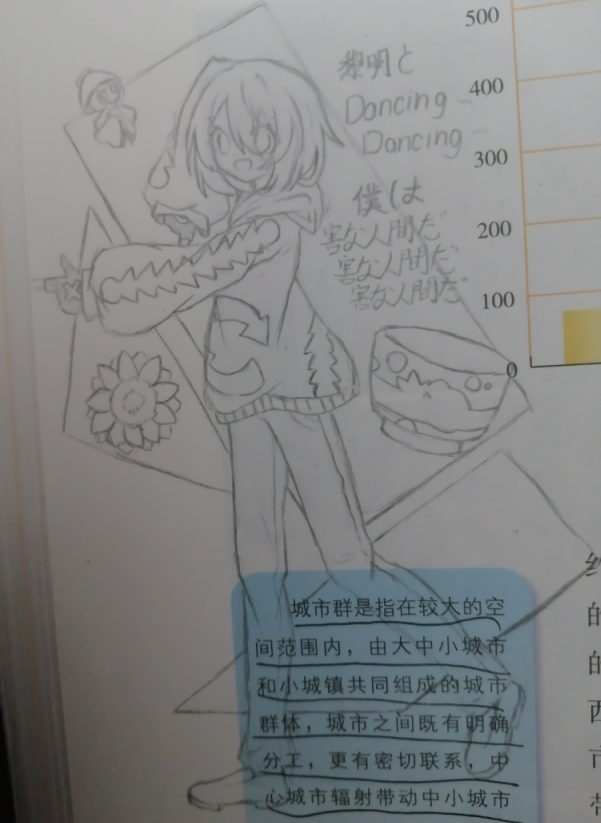 500
400
300
200
100
0
黎明と
Dancing
Dancing
僕は
害な人間だ
害な人間だ
害な人間だ
城市群是指在较大的空
间范围内，由大中小城市
和小城镇共同组成的城市
群体，城市之间既有明确
分工，更有密切联系，中
心城市辐射带动中小城市
的
的
西